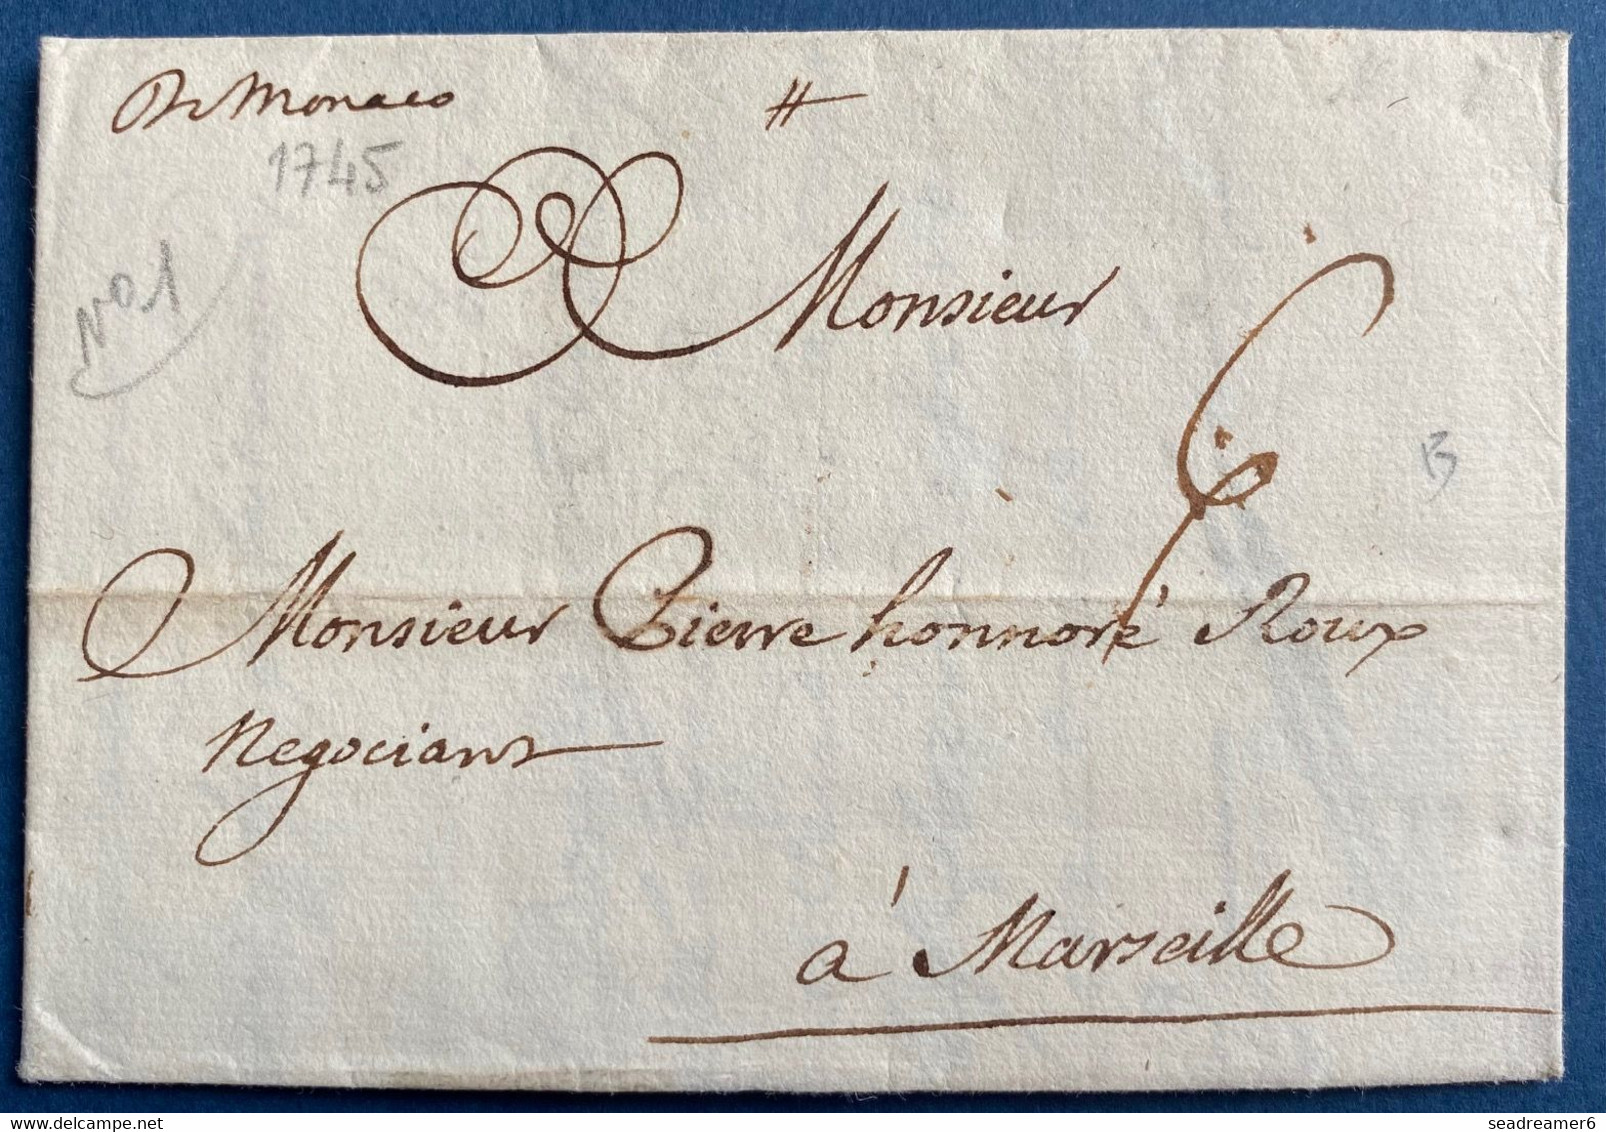 De Monaco
1745
N° 1
Monsieur
6
B
Monsieur Pierre honnoré Roux
Negociant
à Marseille
delcampe.net
seadreamer6